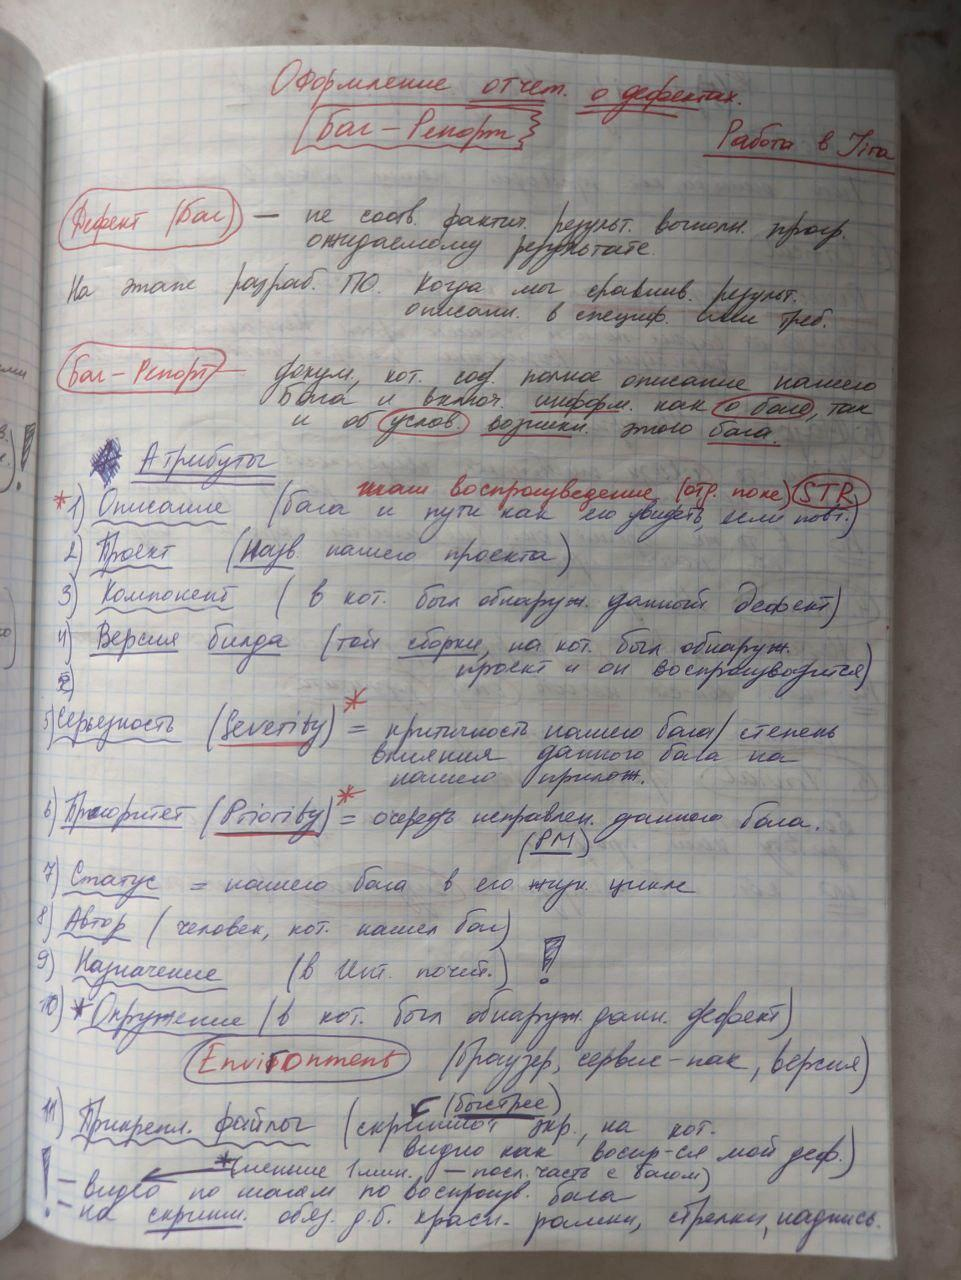 Оформление отчет. о дефектах.
Баг-Репорт
Работа в Jira
Дефект (Баг) — не соотв. фактич. результ. выполн. прогр.
ожидаемому результате.
На этапе разраб. ПО. Когда мы сравнив. результ.
описан. в специф. или треб.
Баг-Репорт — докум, кот. сод. полное описание нашего
бага и включ. информ. как о баге, так
и об услов. возникн. этого бага.
Атрибуты
шаги воспроизведение (отр. поне) STR
* 1) Описание (бага и пути как его увидеть, если повт.)
2) Проект (Назв нашего проекта)
3) Компонент (в кот. был обнаруж. данный дефект)
4) Версия билда (той сборки, на кот. был обнаруж.
проект и он воспроизводится)
5) Серьезность (Severity)* = критичность нашего бага / степень
влияния данного бага на
нашего прилож.
6) Приоритет (Priority)* = очередь исправлен. данного бага.
(PM)
7) Статус = нашего бага в его жизн. цикле
8) Автор (человек, кот. нашел баг)
9) Назначение (в Инт. ) !
10) * Окружение (в кот. был обнаруж. данн. дефект)
Environment (браузер, сервис-пак, версия)
(быстрее)
11) Прикрепл. файлы (скриншот экр., на кот.
видно как воспр-ся мой деф.)
* (меньше 1 мин. — посл. часть с багом)
! — видео по шагам по воспроизв. бага
— на скрин. обяз. д.б. красн. рамки, стрелки, надпись.